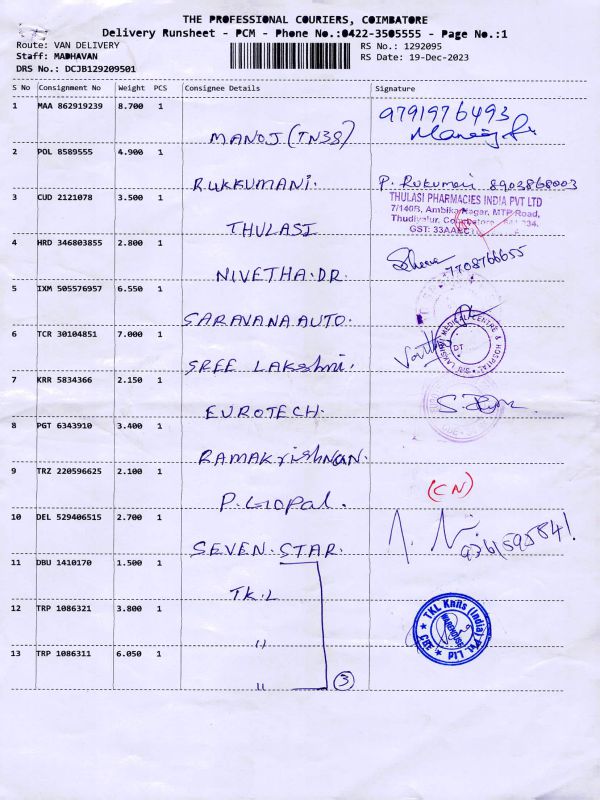 THE PROFESSIONAL COURIERS, COIMBATORE
Delivery Runsheet - PCM - Phone No.:0422-3505555 - Page No.:1
Route: VAN DELIVERY
Staff: MADHAVAN
DRS No.: DCJB129209501
RS No.: 1292095
RS Date: 19-Dec-2023
S No Consignment No Weight PCS Consignee Details Signature
1 MAA 862919239 8.700 1 MANOJ (TN38) 9791976493
2 POL 8589555 4.900 1 RUKKUMANI. P. Rukumani 8903868003
3 CUD 2121078 3.500 1 THULASI
THULASI PHARMACIES INDIA PVT LTD
7/140B, Ambika Nagar, MTP Road,
Thudiyalur, Coimbatore
GST: 33AA
4 HRD 346803855 2.800 1 NIVETHA.DR. 7708766655
5 IXM 505576957 6.550 1 SARAVANA AUTO.
6 TCR 30104851 7.000 1 SREE LAKSHMI.
SRI LAKSHMI MEDICAL CENTRE & HOSPITAL
DT
7 KRR 5834366 2.150 1 EUROTECH.
8 PGT 6343910 3.400 1 RAMAKrishNAN.
9 TRZ 220596625 2.100 1 P.GOPAL. (CN)
10 DEL 529406515 2.700 1 SEVEN.STAR.
11 DBU 1410170 1.500 1 TK.L
12 TRP 1086321 3.800 1 "
TKL Knits (India) Pvt. Ltd
WAREHOUSE
CBE
13 TRP 1086311 6.050 1 " 3